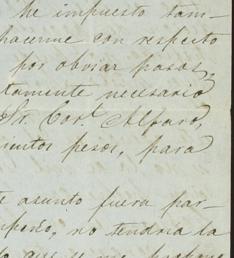 Me impuesto tam-
hacerme con respecto
por obviar pasos,
tamente necesario
Sr. Cor.l Alfaro,
cientos pesos, para
asunto fuera par-
no tendria la